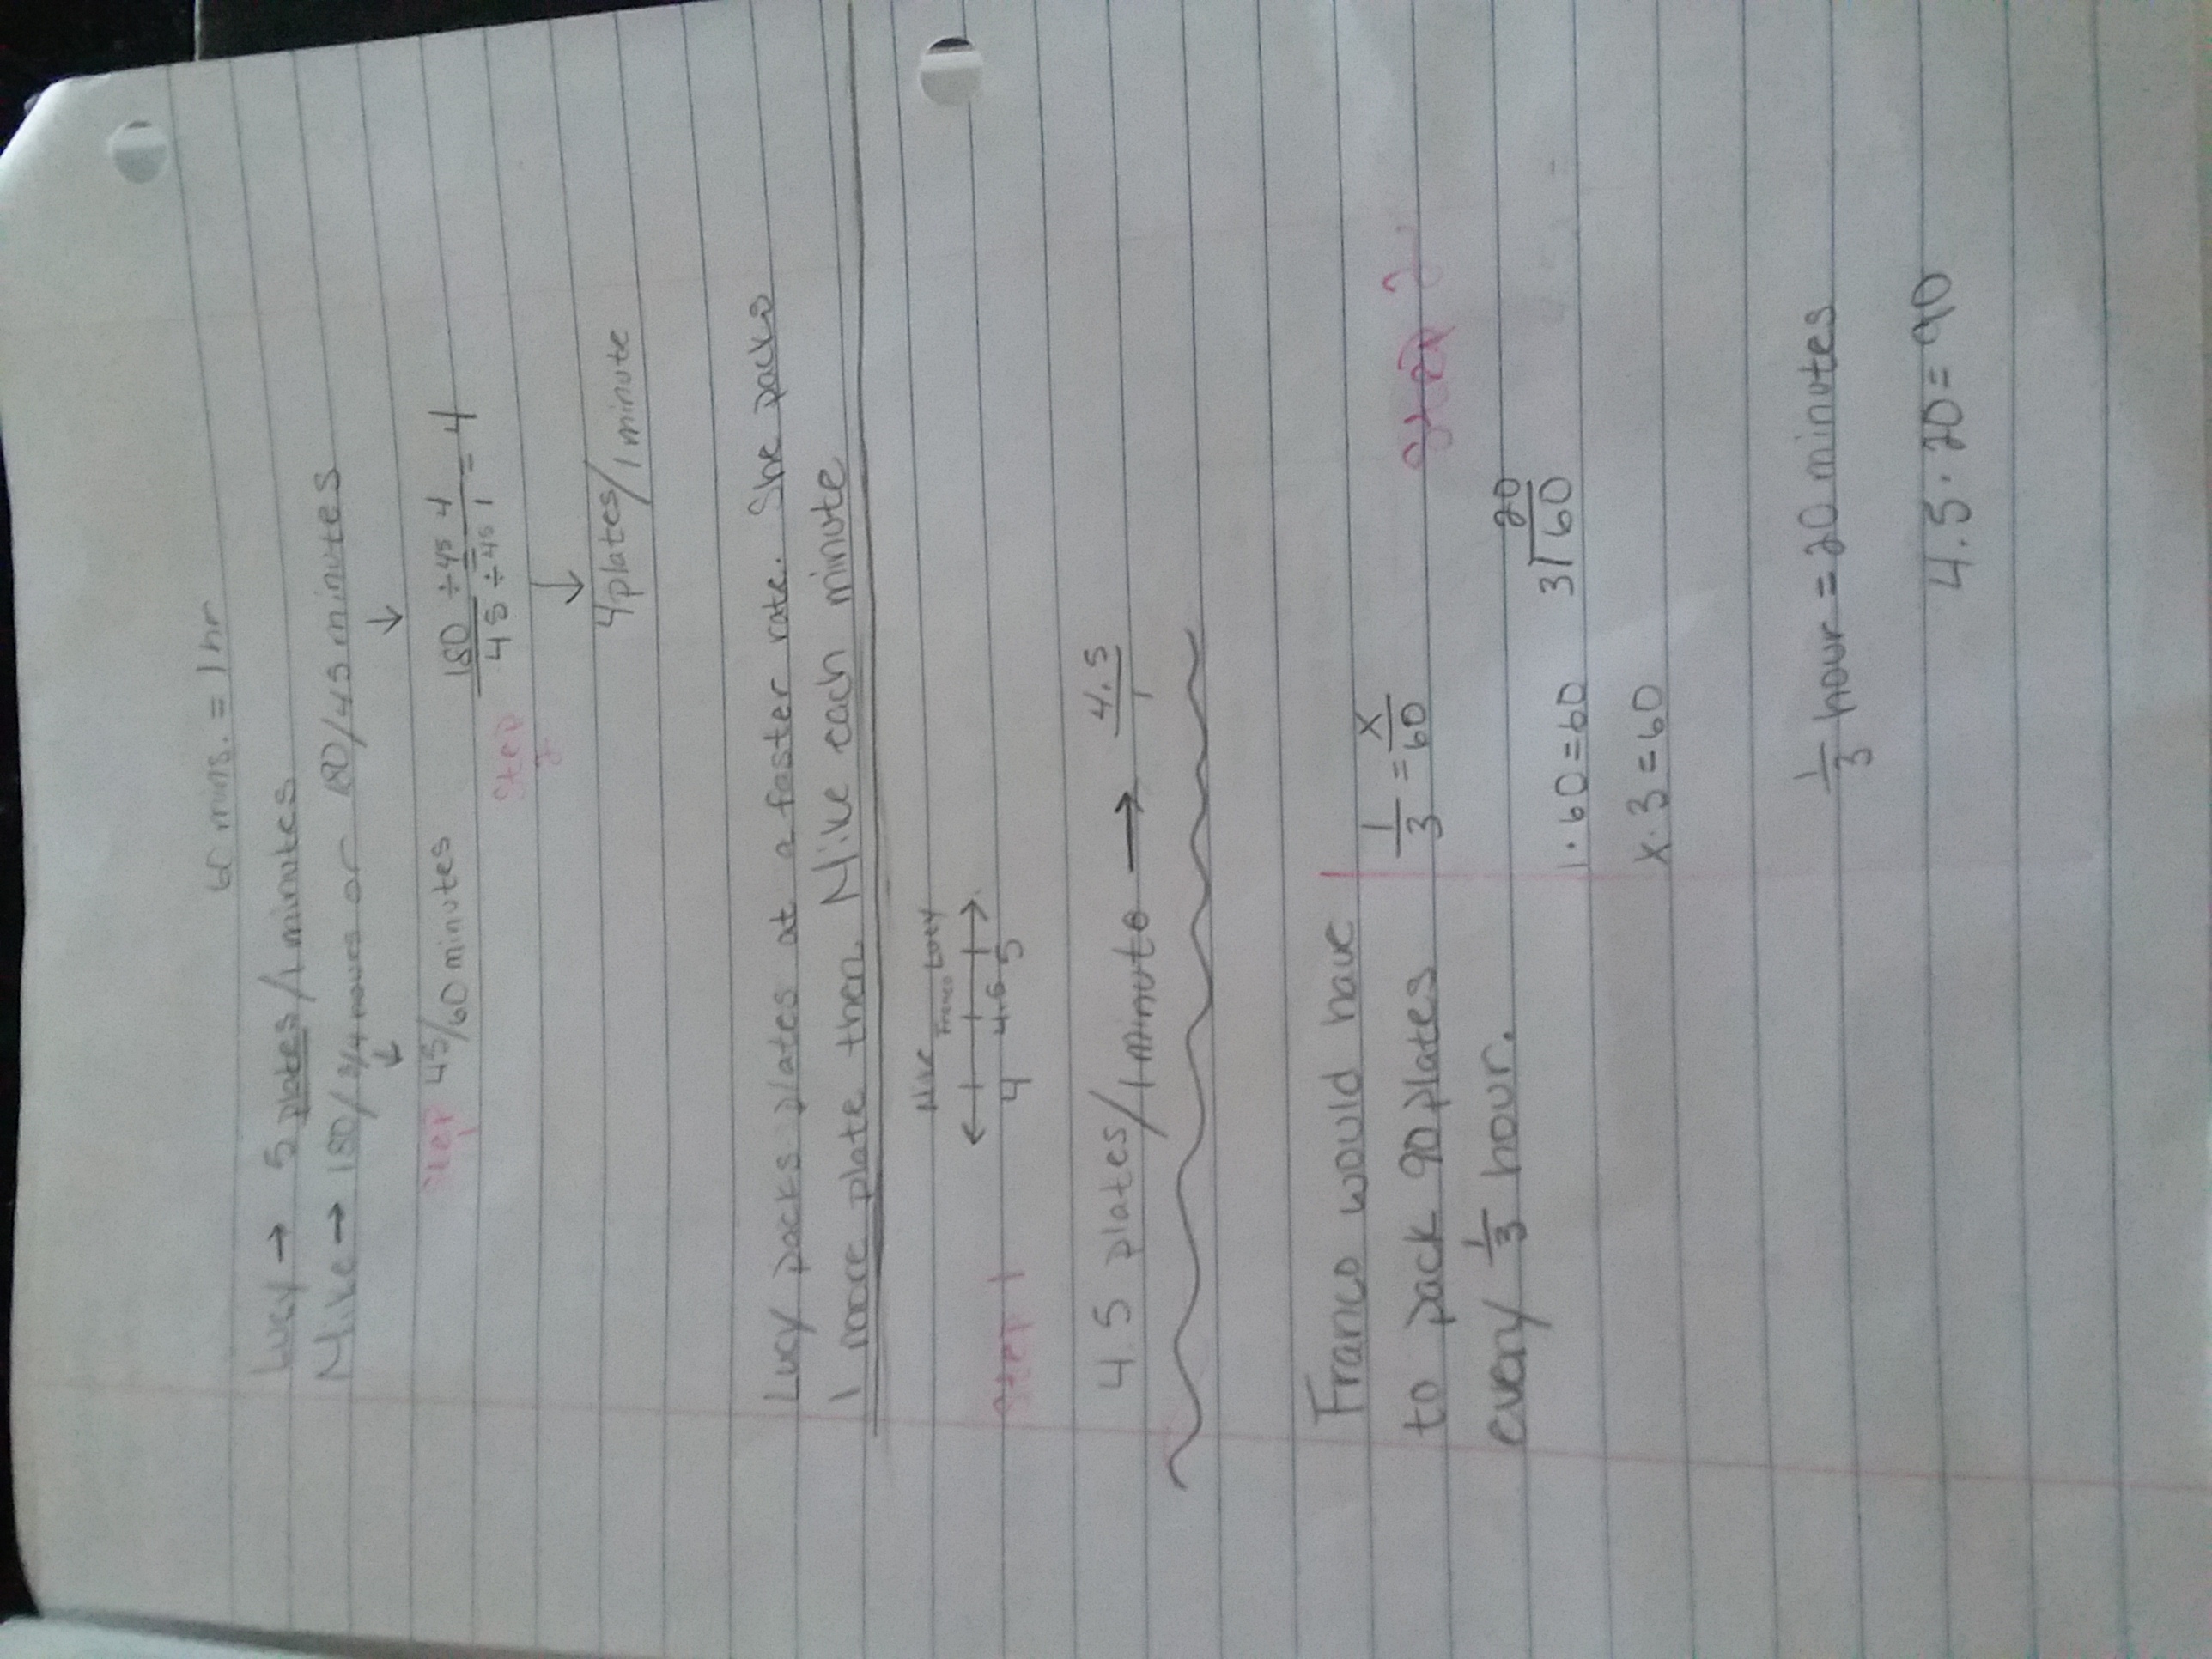 60 mins. = 1 hr
Lucy → 5 plates/1 minutes
Mike → 180/3/4 hours or 180/45 minutes
↓ ↓
Step 1 45/60 minutes Step 2 180/45 ÷45/÷45 = 4/1 = 4
↓
4 plates/1 minute
Lucy packs plates at a faster rate. She packs
1 more plate then Mike each minute
Mike Franco Lucy
Step 1 4 4.5 5
4.5 plates/1 minute → 4.5/1
Franco would have
to pack 90 plates
every 1/3 hour.
1/3 = x/60 step 2
1 · 60 = 60 3⟌60 20
x · 3 = 60
1/3 hour = 20 minutes
4.5 · 20 = 90